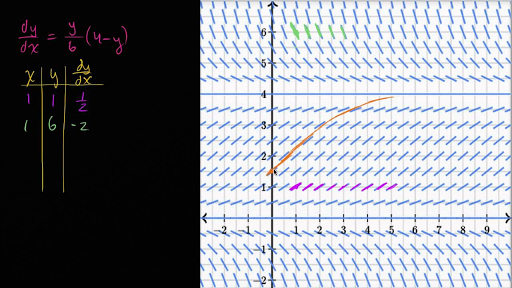 dy/dx = y/6 (4-y)
x y dy/dx
1 1 1/2
1 6 -2
6
5
4
3
2
1
-2 -1 1 2 3 4 5 6 7 8 9
-1
-2